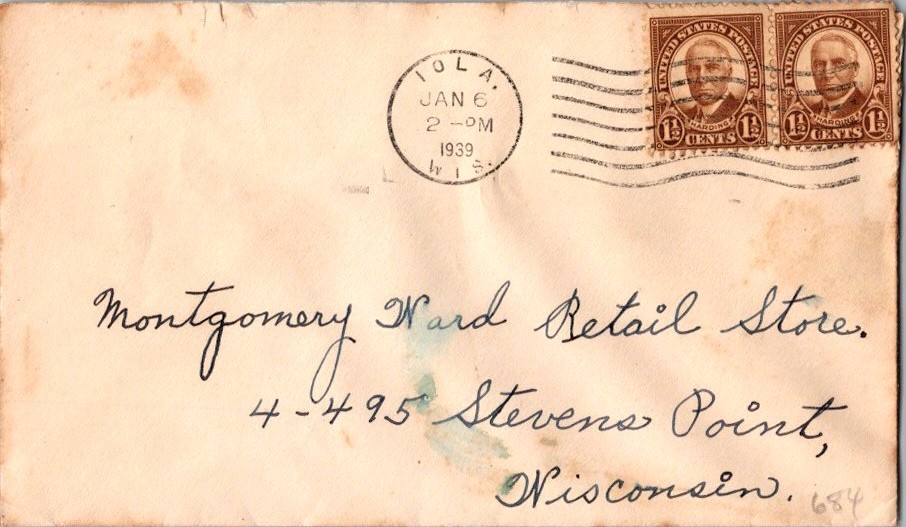 IOLA.
JAN 6
2 - PM
1939
WIS.
UNITED STATES POSTAGE
HARDING
1½ CENTS 1½
UNITED STATES POSTAGE
HARDING
1½ CENTS 1½
Montgomery Ward Retail Store.
4-495 Stevens Point,
Wisconsin.
684